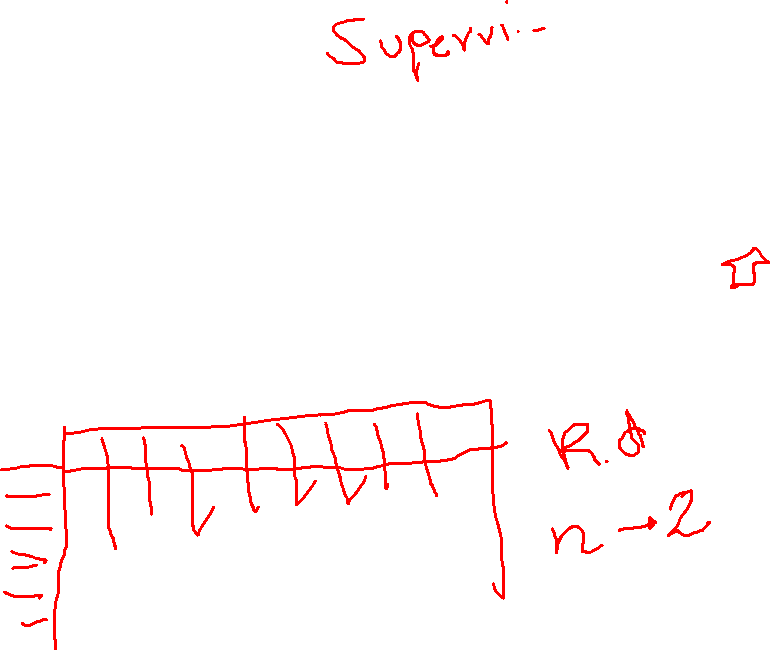 Supervi
n → 2